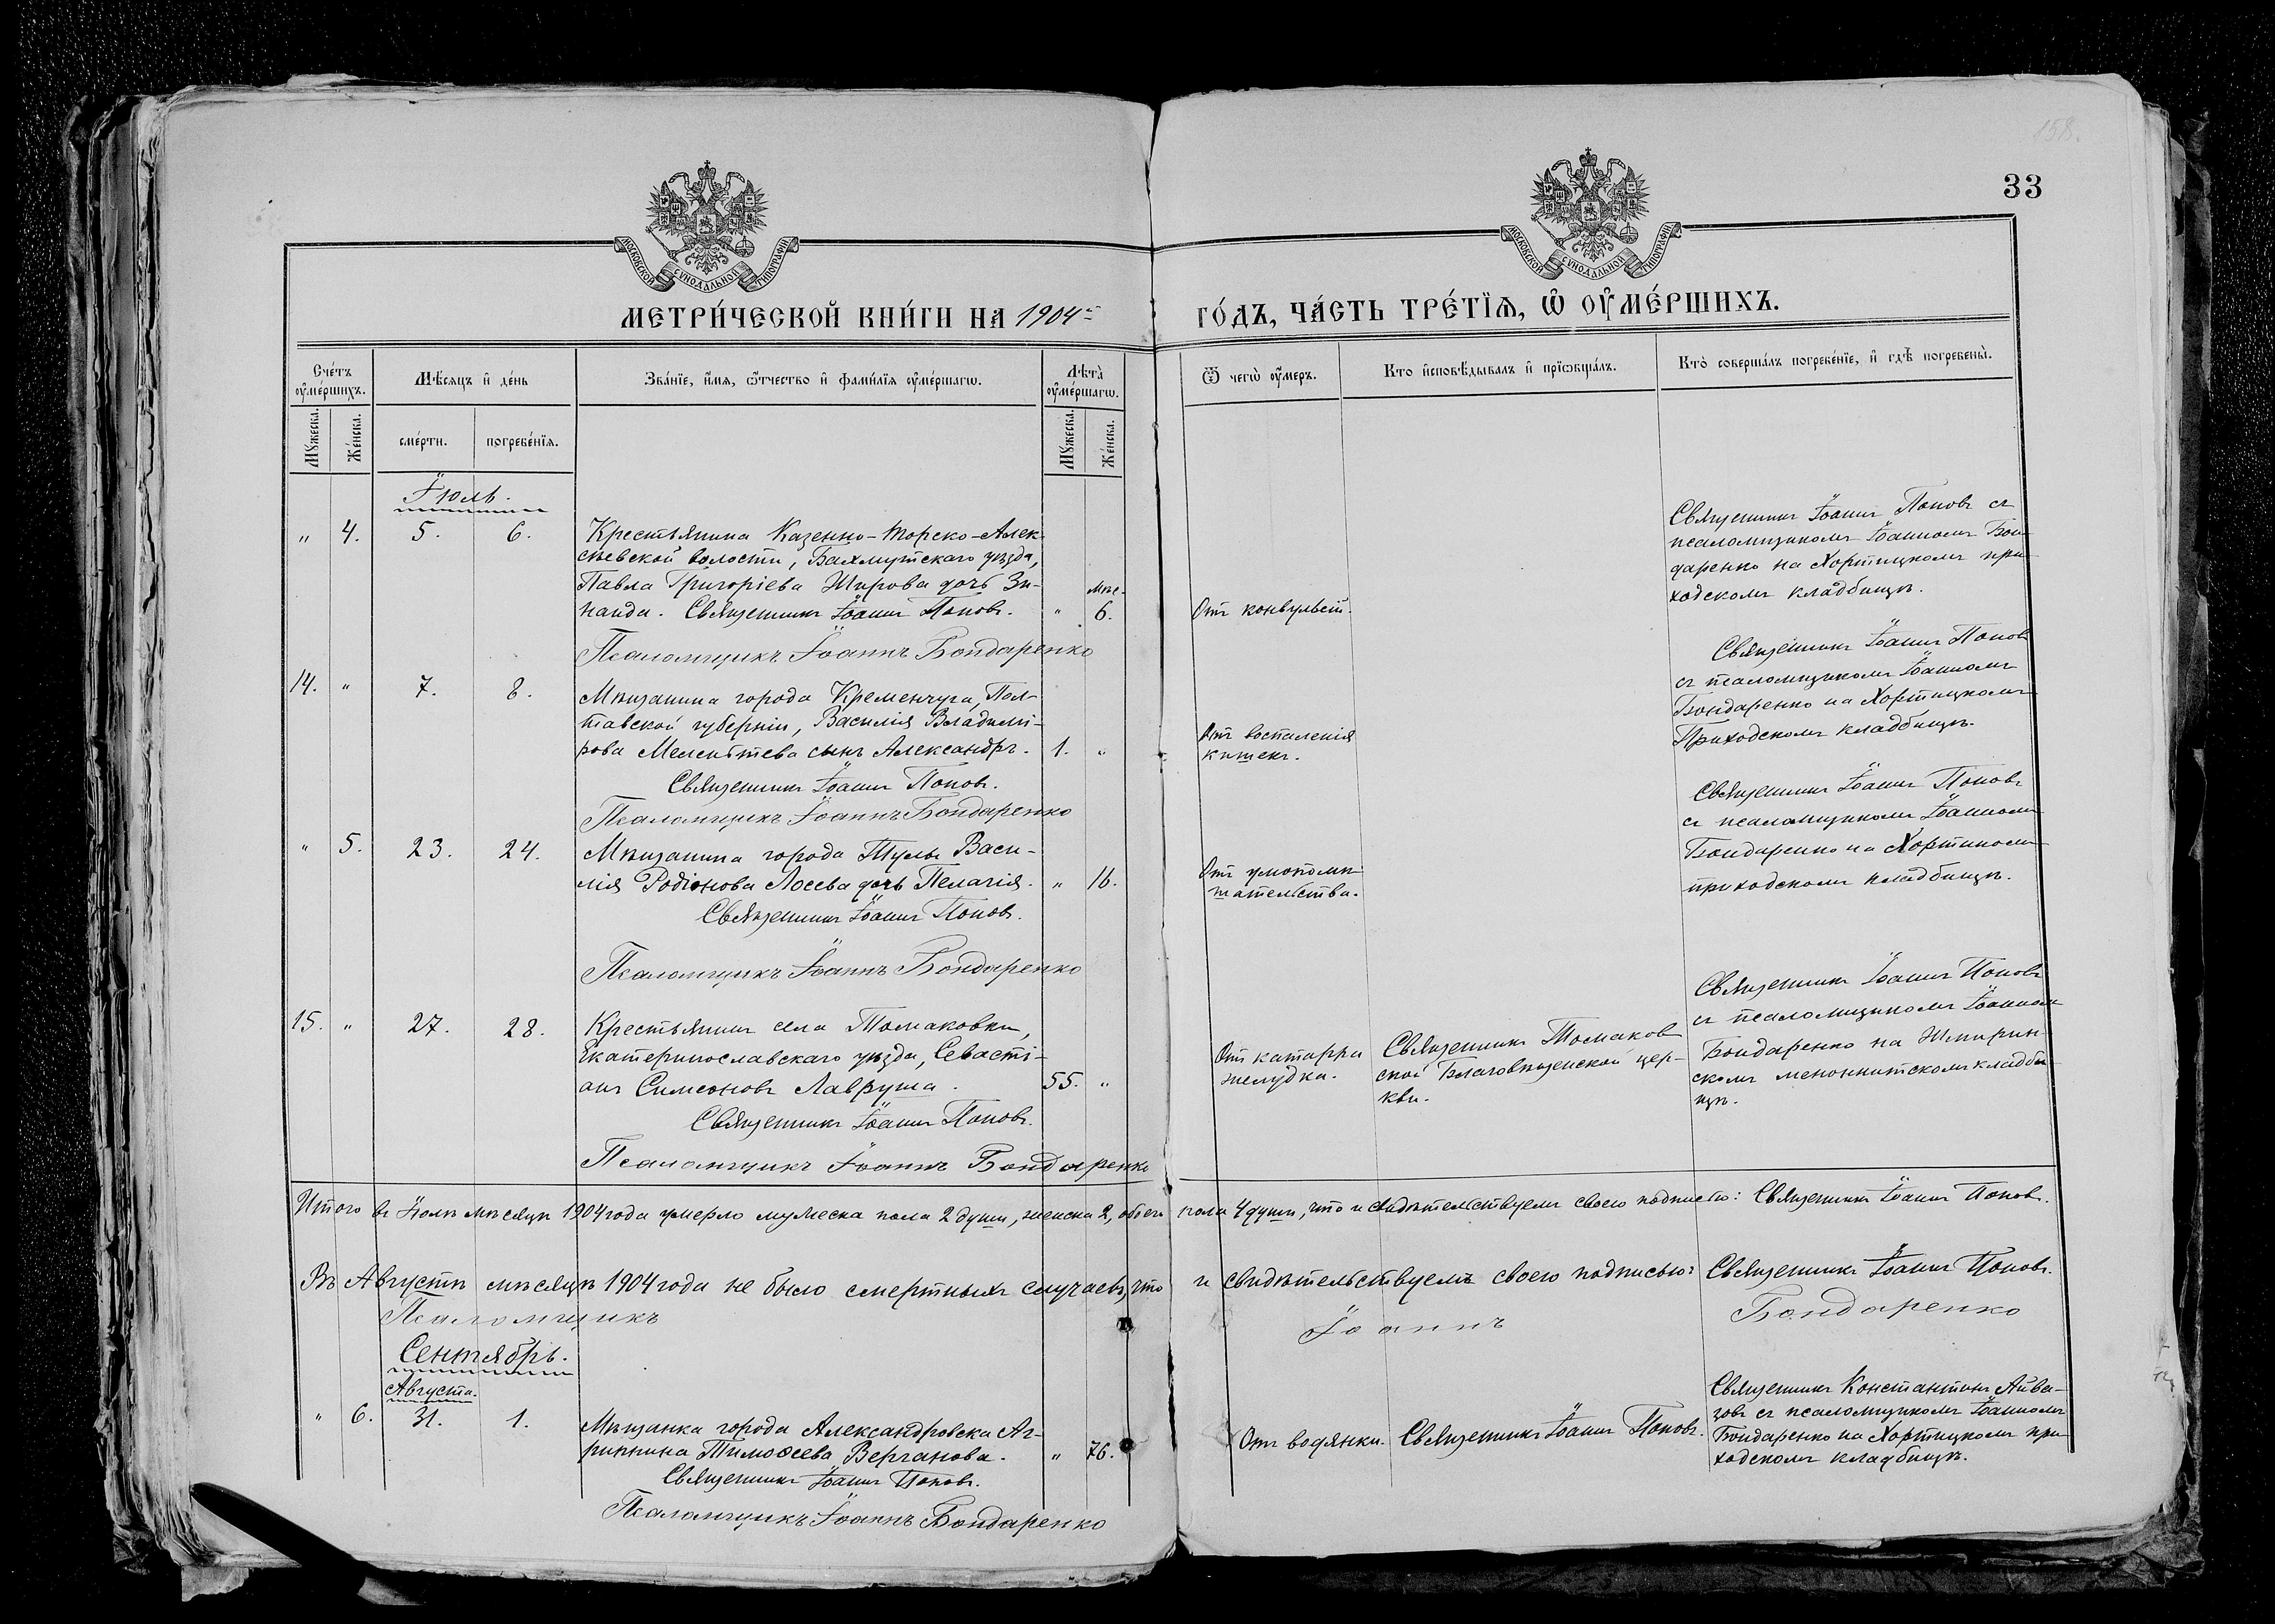 158.
33
МОСКОВСКОЙ СѴНОДАЛЬНОЙ ТИПОГРАФІИ
МОСКОВСКОЙ СѴНОДАЛЬНОЙ ТИПОГРАФІИ
МЕТРИ́ЧЕСКОЙ КНИ́ГИ НА 1904й
ГО́ДЪ, ЧА́СТЬ ТРЕ́ТЇѦ, Ѡ҆ ОУ҆МЕ́РШИХЪ.
Сче́тъ оу҆ме́ршихъ.
Мѣ́сяцъ и҆ де́нь
Зва́нїе, и҆́мя, ѻ҆́тчество и҆ фами́лїя оу҆ме́ршагѡ.
Лѣта̀ оу҆ме́ршагѡ.
Ѿ чегѡ̀ оу҆́меръ.
Кто и҆сповѣ́дывалъ и҆ прїѡбща́лъ.
Кто̀ соверша́лъ погребе́нїе, и҆ гдѣ̀ погребены̀.
Мꙋ́жеска.
Же́нска.
сме́рти.
погребе́нїя.
Мꙋ́жеска.
Же́нска.
Іюль.
" 4. 5. 6.
Крестьянина Казенно-Торско-Алек-
сѣевской волости, Бахмутскаго уѣзда,
Павла Григоріева Широва дочь Зи-
наида. Священникъ Іоаннъ Поповъ. " Мѣс. 6.
Псаломщикъ Іоаннъ Бондаренко
Отъ конвульсій.
Священникъ Іоаннъ Поповъ съ
псаломщикомъ Іоанномъ Бон-
даренко на Хортицкомъ при-
ходскомъ кладбищѣ.
14. " 7. 8.
Мѣщанина города Кременчуга, Пол-
тавской губерніи, Василія Владимі-
рова Мелентьева сынъ Александръ. 1. "
Священникъ Іоаннъ Поповъ.
Псаломщикъ Іоаннъ Бондаренко
Отъ воспаленія
кишекъ.
Священникъ Іоаннъ Поповъ
съ псаломщикомъ Іоанномъ
Бондаренко на Хортицкомъ
Приходскомъ кладбищѣ.
" 5. 23. 24.
Мѣщанина города Тулы Васи-
лія Родіонова Лосева дочь Пелагія. " 16.
Священникъ Іоаннъ Поповъ.
Псаломщикъ Іоаннъ Бондаренко
Отъ умопомѣ-
шательства.
Священникъ Іоаннъ Поповъ
съ псаломщикомъ Іоанномъ
Бондаренко на
приходскомъ кладбищѣ.
15. " 27. 28.
Крестьянинъ села Томаковки,
Екатеринославскаго уѣзда, Севасті-
анъ Симеоновъ Лавруша. 55. "
Священникъ Іоаннъ Поповъ.
Псаломщикъ Іоаннъ Бондаренко
Отъ катарра
желудка.
Священникъ Томаков
ской Благовѣщенской цер-
кви.
Священникъ Іоаннъ Поповъ
съ псаломщикомъ Іоанномъ
Бондаренко на
скомъ менонитскомъ кладби
щѣ.
Итого въ Іюлѣ мѣсяцѣ 1904 года умерло мужеска пола 2 души, женска 2, обоего пола 4 души, что и свидѣтельствуемъ своею подписью: Священникъ Іоаннъ Поповъ.
Въ Августѣ мѣсяцѣ 1904 года не было смертныхъ случаевъ, что и свидѣтельствуемъ своею подписью: Священникъ Іоаннъ Поповъ.
Псаломщикъ Іоаннъ Бондаренко
Сентябрь.
Августа.
" 6. 31. 1.
Мѣщанка города Александровска Аг-
риппина Тимоѳеева Верганова. " 76.
Священникъ Іоаннъ Поповъ.
Псаломщикъ Іоаннъ Бондаренко
Отъ водянки.
Священникъ Іоаннъ Поповъ.
Священникъ Константинъ Айва-
зовъ съ псаломщикомъ Іоанномъ
Бондаренко на Хортицкомъ при
ходскомъ кладбищѣ.